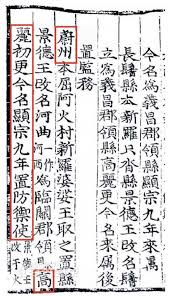 今名爲義昌郡領縣顯宗九年來屬
長鬐縣本新羅只沓縣景德王改名鬐
立爲義昌郡領縣高麗更今名來屬後
置監務
蔚州本屈阿火村新羅婆娑王取之置縣
景德王改名河曲一作河西爲臨關郡領縣高
麗初更今名顯宗九年置防禦使